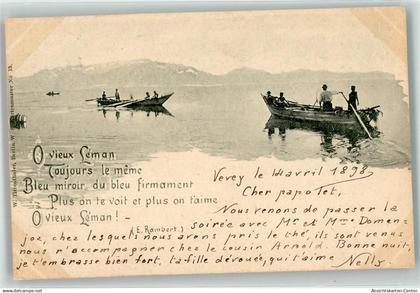 O vieux Léman
Toujours le même
Bleu miroir, du bleu firmament
Plus on te voit et plus on t'aime
O vieux Léman! –
(E. Rambert.)
Vevey le 14 avril 1898
Cher papa Tet,
Nous venons de passer la
soirée avec Mr et Mme Domen-
joz, chez lesquels nous avons pris le thé, ils sont venus
nous r'accompagner chez le cousin Arnold. Bonne nuit,
je t'embrasse bien fort, ta fille dévouée, qui t'aime
Nelly